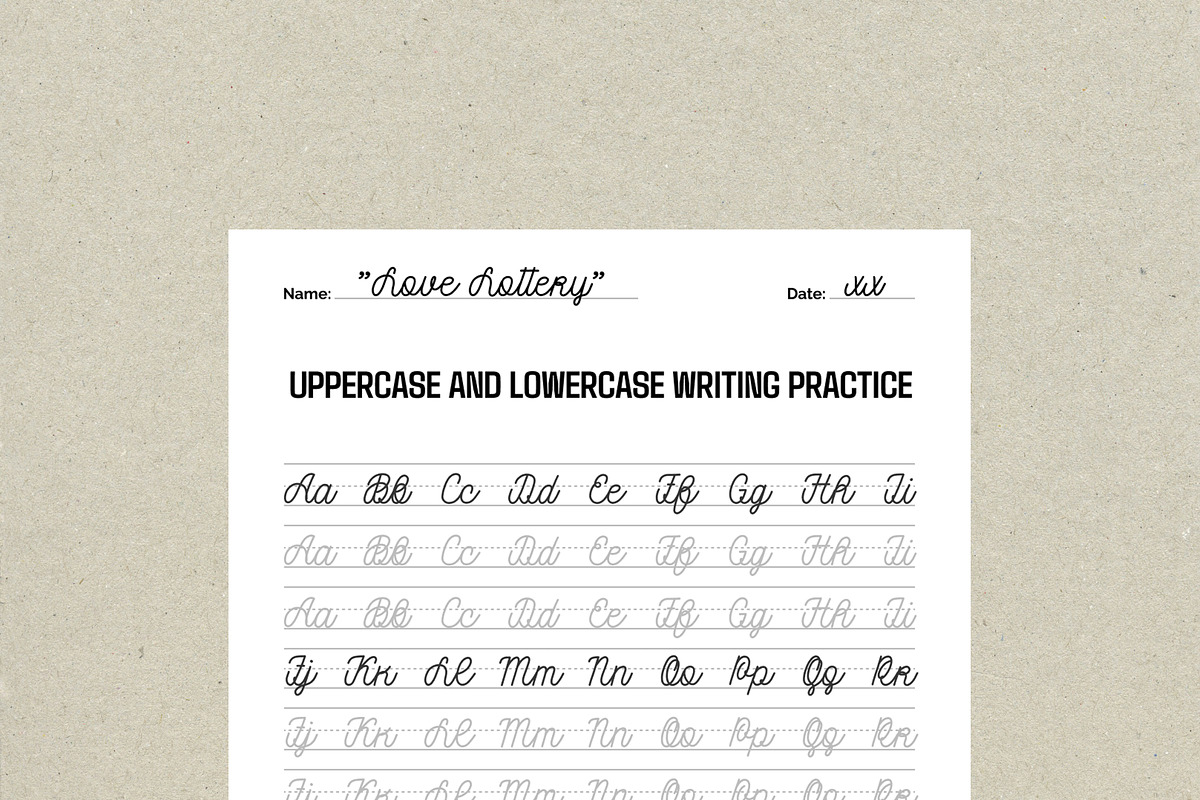 Name: "Love Lottery" Date: xx
UPPERCASE AND LOWERCASE WRITING PRACTICE
Aa Bb Cc Dd Ee Ff Gg Hh Ii
Aa Bb Cc Dd Ee Ff Gg Hh Ii
Aa Bb Cc Dd Ee Ff Gg Hh Ii
Jj Kk Ll Mm Nn Oo Pp Qq Rr
Jj Kk Ll Mm Nn Oo Pp Qq Rr
Jj Kk Ll Mm Nn Oo Pp Qq Rr